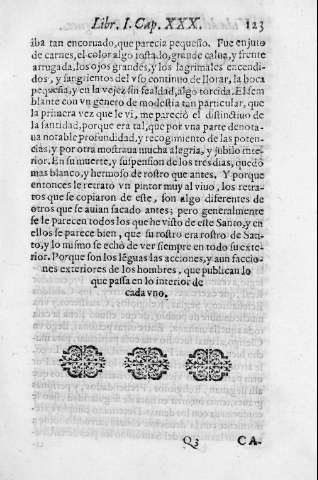 Libr. I. Cap. XXX. 123
iba tan encoruado, que parecia pequeño. Fue enjuto
de carnes, el color algo rostalo, grande calua, y frente
arrugada, los ojos grandes, y los lagrimales encendi-
dos, y sangrientos del vso continuo de llorar, la boca
pequeña, y en la vejez sin fealdad, algo torcida. El sem
blante con vn genero de modestia tan particular, que
la primera vez que le vi, me pareciò el distinctiuo de
la santidad, porque era tal, que por vna parte denota-
ua notable profundidad, y recogimiento de las poten-
cias, y por otra mostraua mucha alegria, y jubilo inte-
rior. En su muerte, y suspension de los tres dias, quedò
mas blanco, y hermoso de rostro que antes. Y porque
entonces le retratò vn pintor muy al viuo, los retra-
tos que se copiaron de este, son algo diferentes de
otros que se auian sacado antes; pero generalmente
se le parecen todos los que he visto de este Santo, y en
ellos se parece bien, que su rostro era rostro de San-
to, y lo mismo se echò de ver siempre en todo su exte-
rior. Porque son los lẽguas las acciones, y aun faccio-
nes exteriores de los hombres, que publican lo
que passa en lo interior de
cada vno.
Q3 CA-